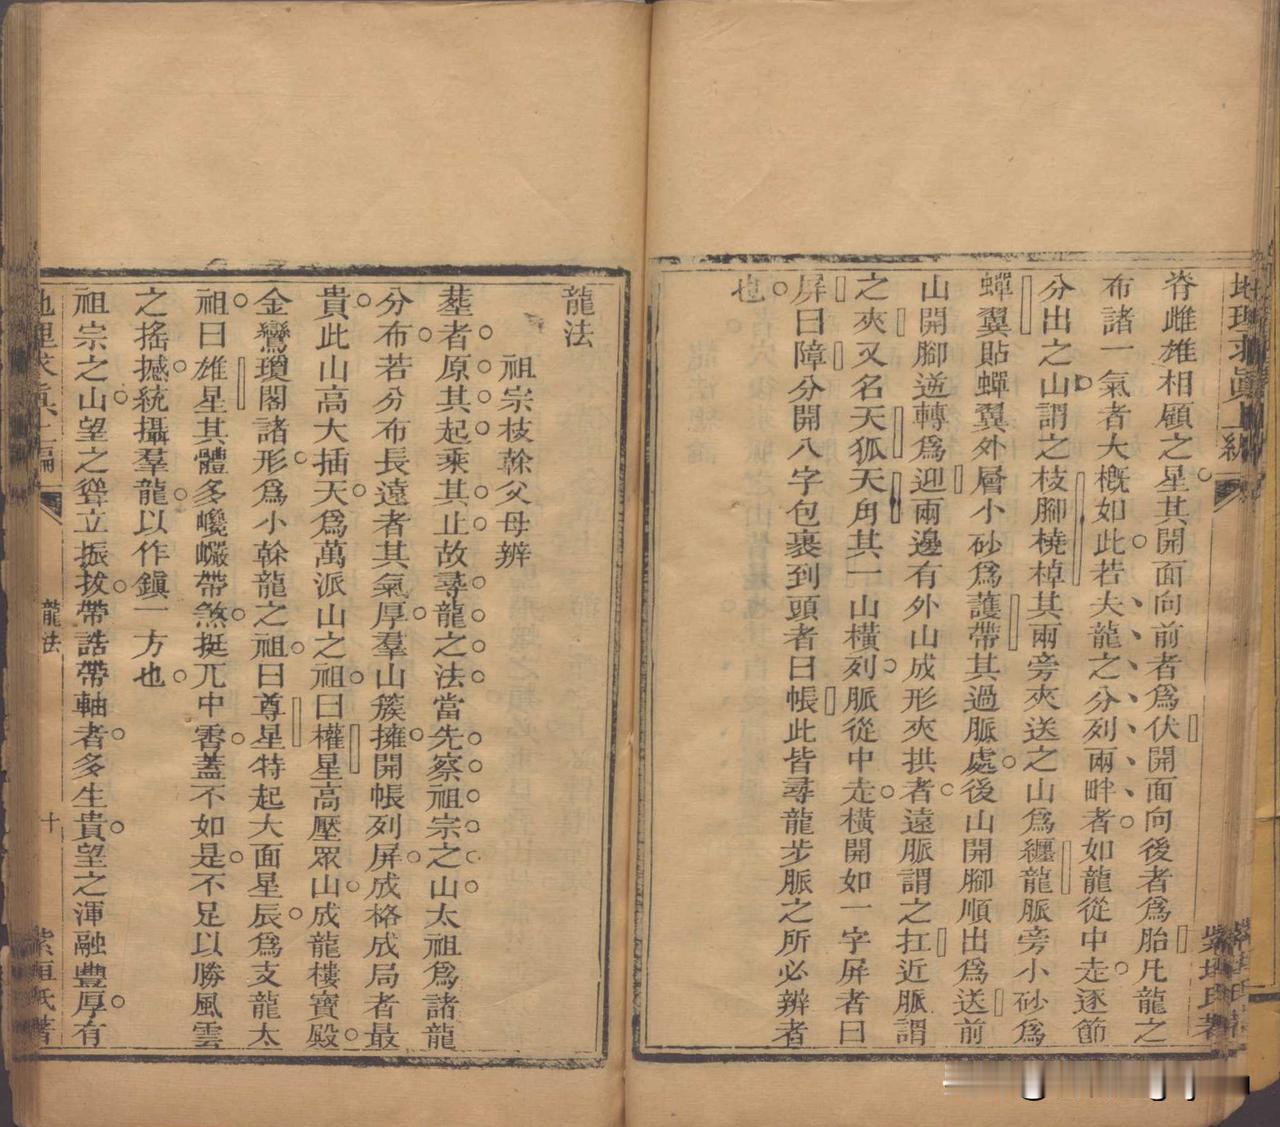 地理求眞上編
紫垣氏著
脊雌雄相顧之星其開面向前者爲伏開面向後者爲胎凡龍之
布諸一氣者大槪如此若夫龍之分列兩畔者如龍從中走逐節
分出之山謂之枝腳橈棹其兩旁夾送之山爲纏龍脈旁小砂爲
蟬翼貼蟬翼外層小砂爲護帶其過脈處後山開腳順出爲送前
山開腳逆轉爲迎兩邊有外山成形夾拱者遠脈謂之扛近脈謂
之夾又名天狐天角其一山橫列脈從中走橫開如一字屏者曰
屏曰障分開八字包裹到頭者曰帳此皆尋龍步脈之所必辨者
也
龍法
祖宗枝榦父母辨
葬者原其起乘其止故尋龍之法當先察祖宗之山太祖爲諸龍
分布若分布長遠者其氣厚羣山簇擁開帳列屏成格成局者最
貴此山高大插天爲萬派山之祖曰權星高壓眾山成龍樓寶殿
金鸞瓊閣諸形爲小榦龍之祖曰尊星特起大面星辰爲支龍太
祖曰雄星其體多巉巗帶煞挺兀中雲蓋不如是不足以勝風雲
之搖撼統攝羣龍以作鎭一方也
祖宗之山望之聳立振拔帶誥帶軸者多生貴望之渾融豐厚有
地理求眞上編
龍法
十
紫垣氏著